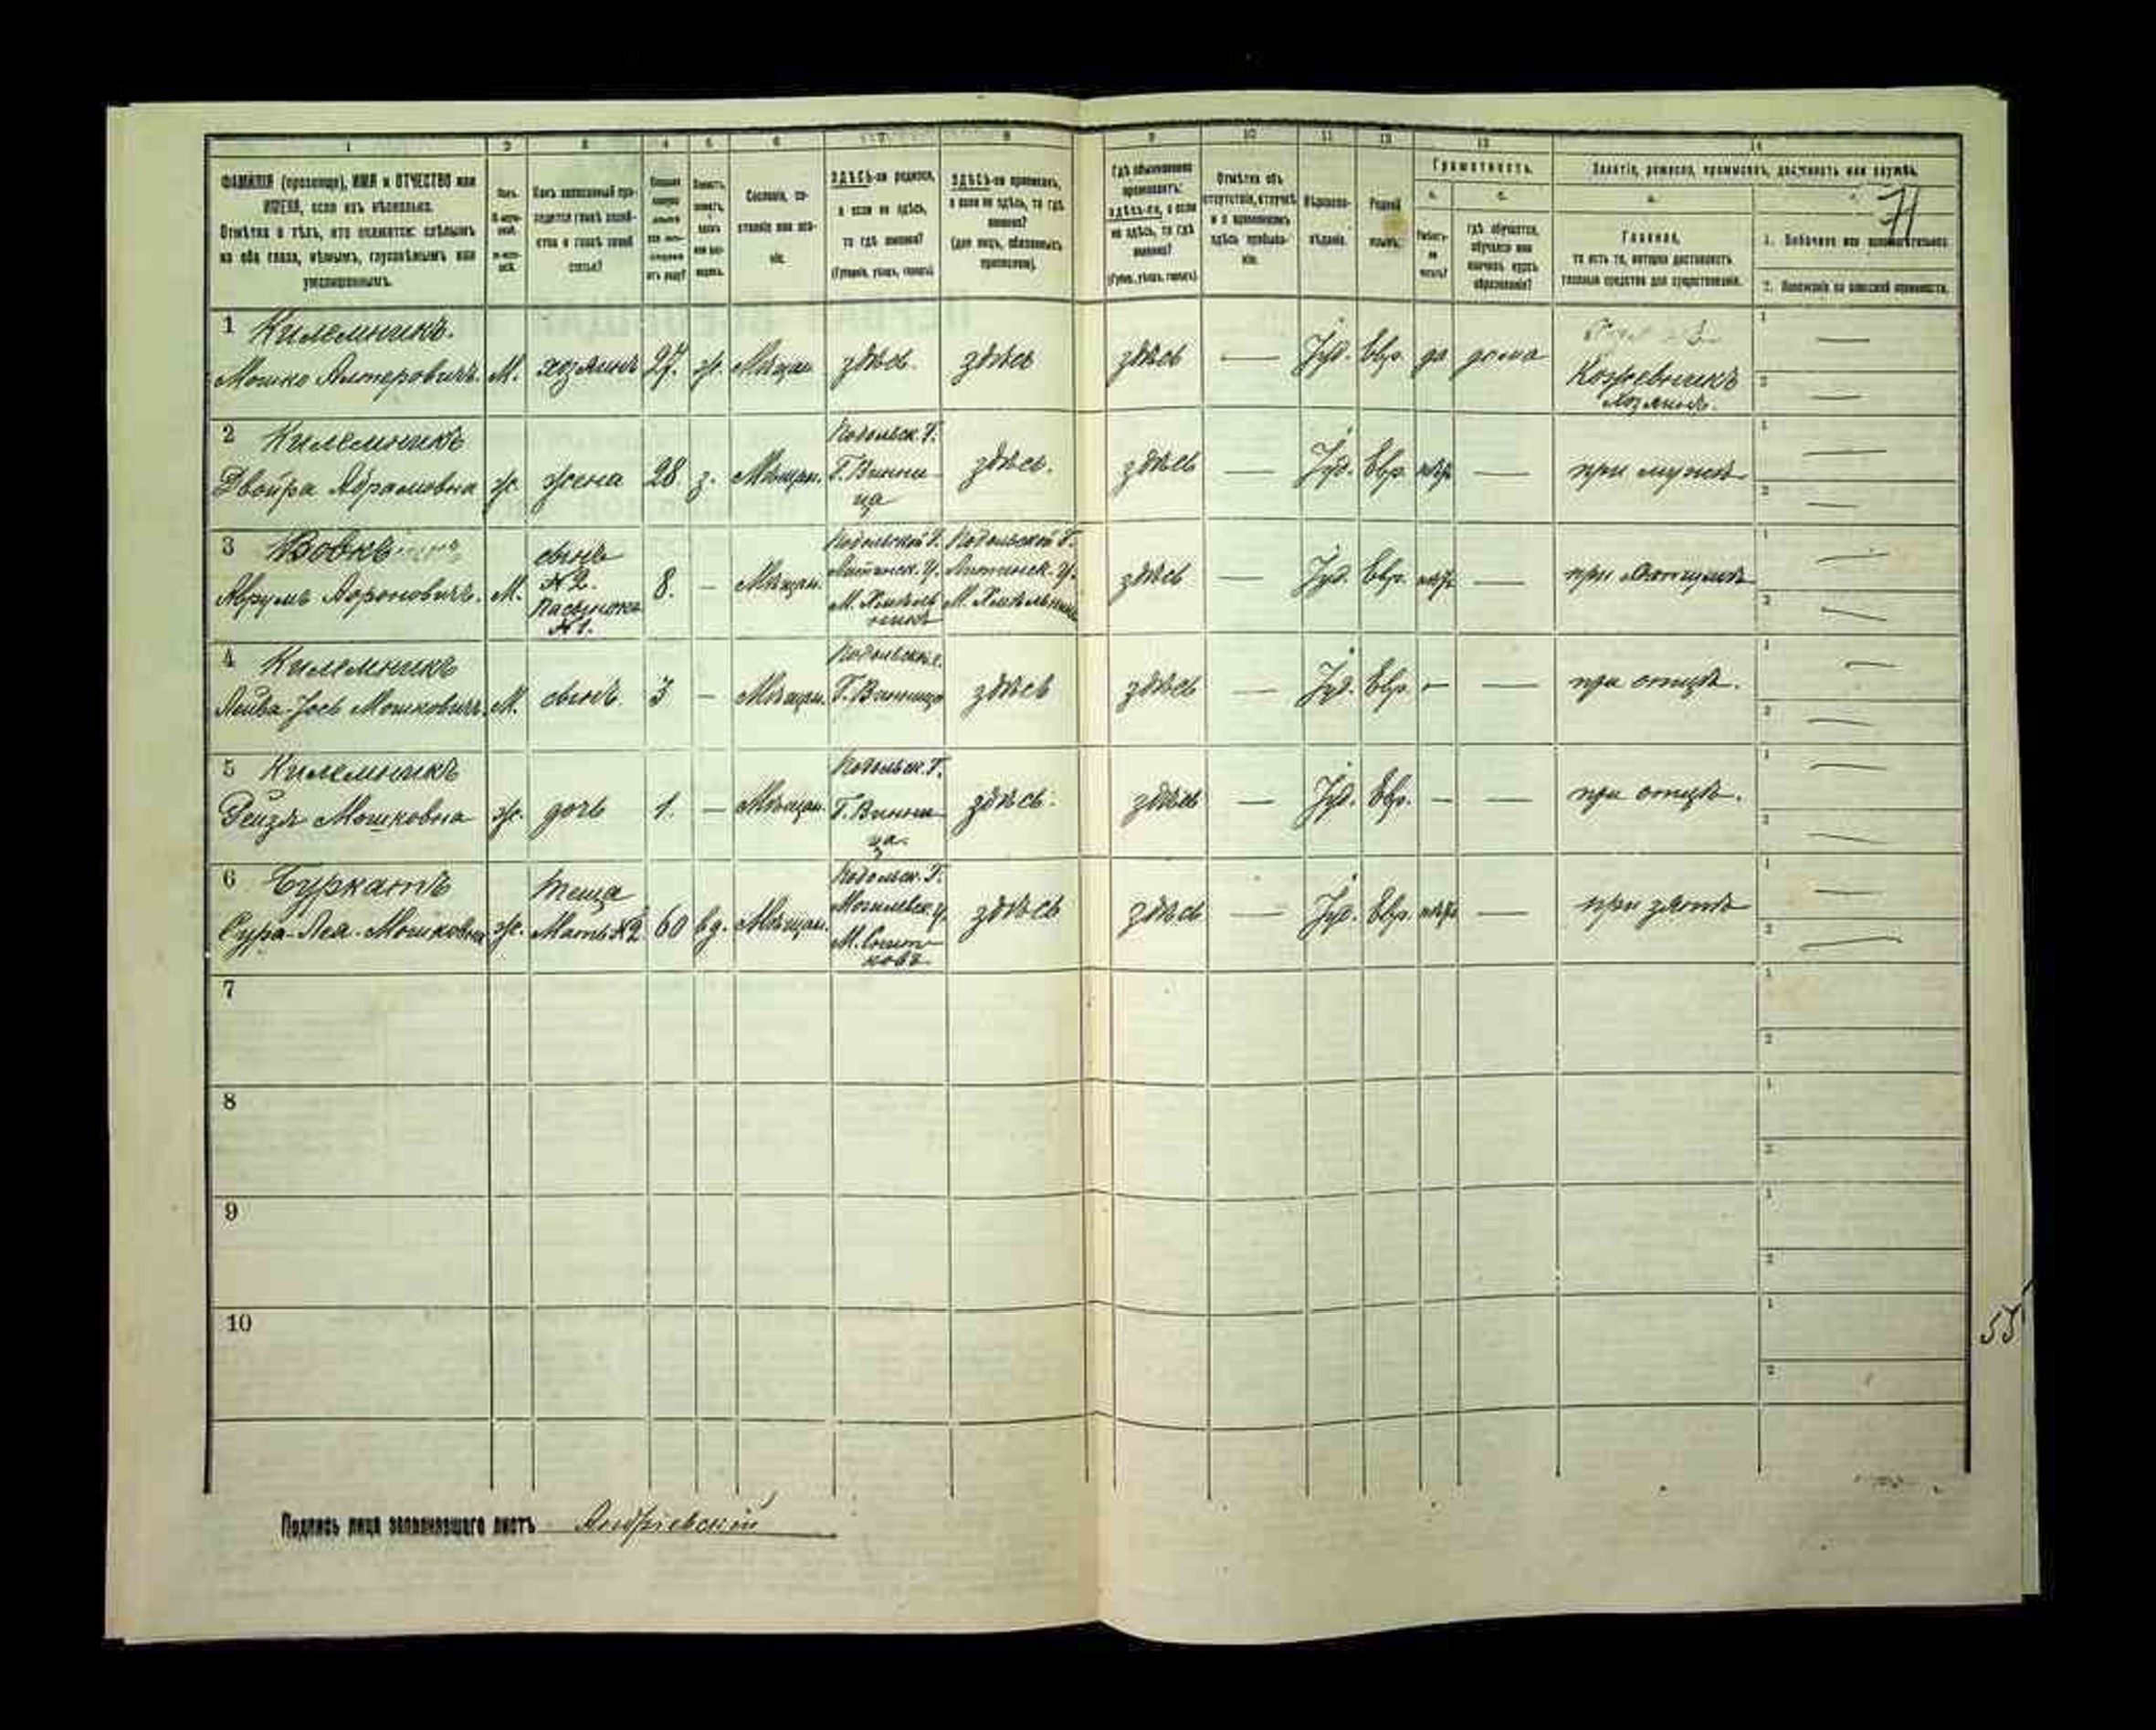 1 2 3 4 5 6 7 8 9 10 11 12 13 14
ФАМИЛІЯ (прозвище), ИМЯ и ОТЧЕСТВО или
ИМЕНА, если ихъ нѣсколько.
Отмѣтка о тѣхъ, кто окажется: слѣпымъ
на оба глаза, нѣмымъ, глухонѣмымъ или
умалишеннымъ.
Полъ.
Какъ записанный при-
ходится главѣ хозяй-
ства и главѣ своей
семьи?
Сословіе, со-
стояніе или зва-
ніе.
ЗДѢСЬ-ли родился,
а если не здѣсь,
то гдѣ именно?
(Губернія, уѣздъ, городъ).
ЗДѢСЬ-ли приписанъ,
а если не здѣсь, то гдѣ
именно?
(для лицъ, обязанныхъ
припискою).
Гдѣ обыкновенно
проживаетъ:
здѣсь-ли, а если
не здѣсь, то гдѣ
именно?
(Губер., уѣздъ, городъ).
Отмѣтка объ
отсутствіи, отлучкѣ
и о временномъ
здѣсь пребыва-
ніи.
Вѣроиспо-
вѣданіе.
Родной
языкъ.
Грамотность.
а.
Умѣетъ-
ли
читать?
б.
гдѣ обучается,
обучался или
кончилъ курсъ
образованія?
Занятіе, ремесло, промыселъ, должность или служба.
а.
Главное,
то есть то, которое доставляетъ
главныя средства для существованія.
71
1. Побочное или вспомогательное.
2. Положеніе по воинской повинности.
1 Килемникъ.
Мошко Алтеровичъ. М. хозяинъ 27. ж. Мѣщан. здѣсь. здѣсь здѣсь — Іуд. Евр. да дома
Кожевникъ
хозяинъ.
2 Килемникъ
Двойра Абрамовна ж. жена 28 з. Мѣщан.
Подольск. Г.
Г. Винни-
ца
здѣсь. здѣсь — Іуд. Евр. нѣтъ — при мужѣ
3 Вовкъ
Аврумъ Ароновичъ. М.
сынъ
№ 2.
пасынокъ
№ 1.
8. — Мѣщан.
Подольской Г.
Литинск. у.
М. Хмѣль-
никъ
Подольской Г.
Литинск. у.
М. Хмѣльникъ
здѣсь — Іуд. Евр. нѣтъ — при отчимѣ
4 Килемникъ
Лейба-Јось Мошковичъ. М. сынъ. 3 — Мѣщан.
Подольской г.
Г. Винница
здѣсь здѣсь — Іуд. Евр. — — при отцѣ.
5 Килемникъ
Рейзя Мошковна ж. дочь 1. — Мѣщан.
Подольск. Г.
Г. Винни-
ца.
здѣсь. здѣсь — Іуд. Евр. — — при отцѣ.
6 Буркатъ
Сура-Лея Мошковна ж.
теща
Мать № 2
60 вд. Мѣщан.
Подольск. Г.
Могилевск. у.
М. Снит-
ковъ.
здѣсь здѣсь — Іуд. Евр. нѣтъ — при зятѣ
7
8
9
10
55
Подпись лица заполнявшаго листъ Андріевскій